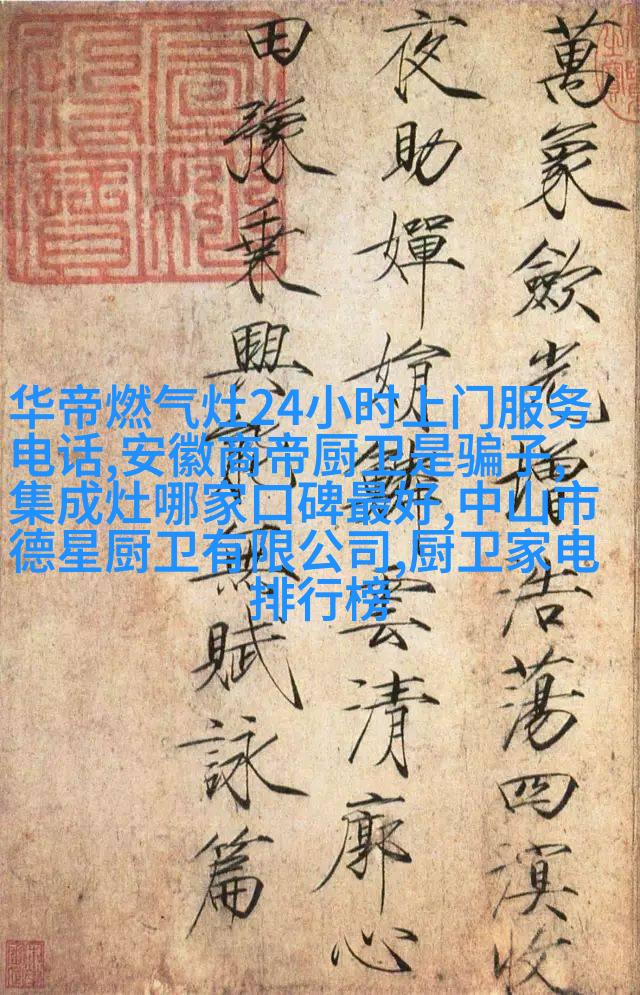 萬象歛光增浩蕩四溟收
夜助嬋娟鱗雲清廓心
田豫乗興能無賦詠篇
华帝燃气灶24小时上门服务
电话,安徽商帝厨卫是骗子,
集成灶哪家口碑最好,中山市
德星厨卫有限公司,厨卫家电
排行榜